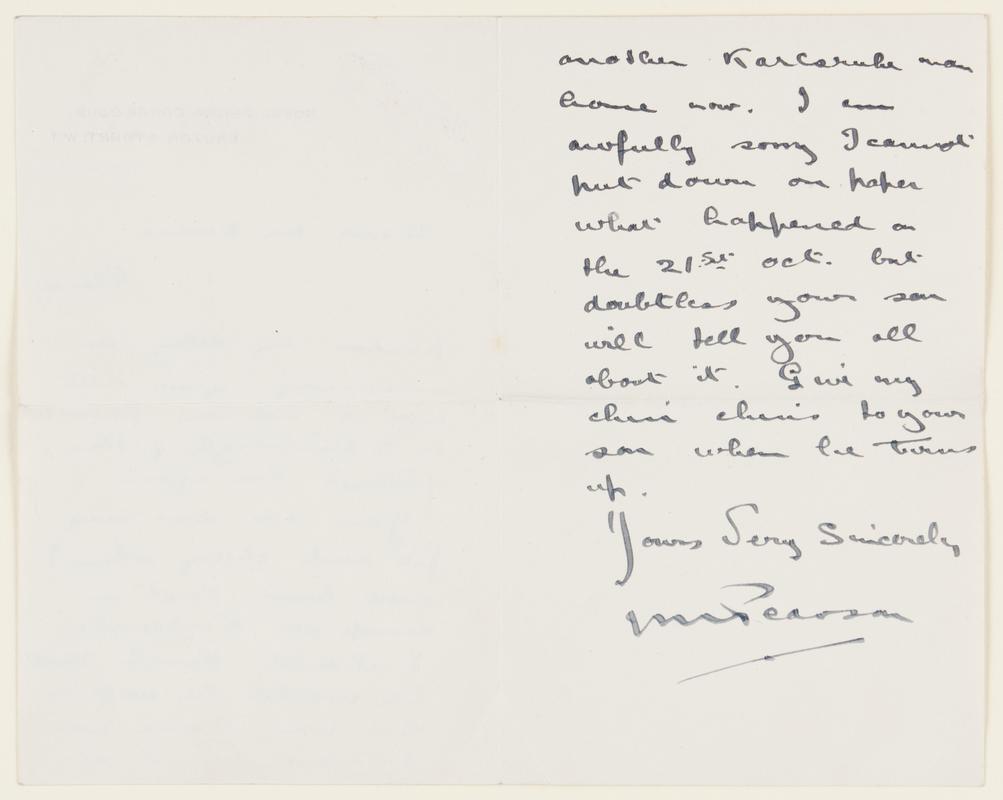 another Karlsruhe man
home now. I am
awfully sorry I cannot
put down on paper
what happened on
the 21st Oct. but
doubtless your son
will tell you all
about it. Give my
chin chins to your
son when he turns
up.
Yours Very Sincerely
Pearson